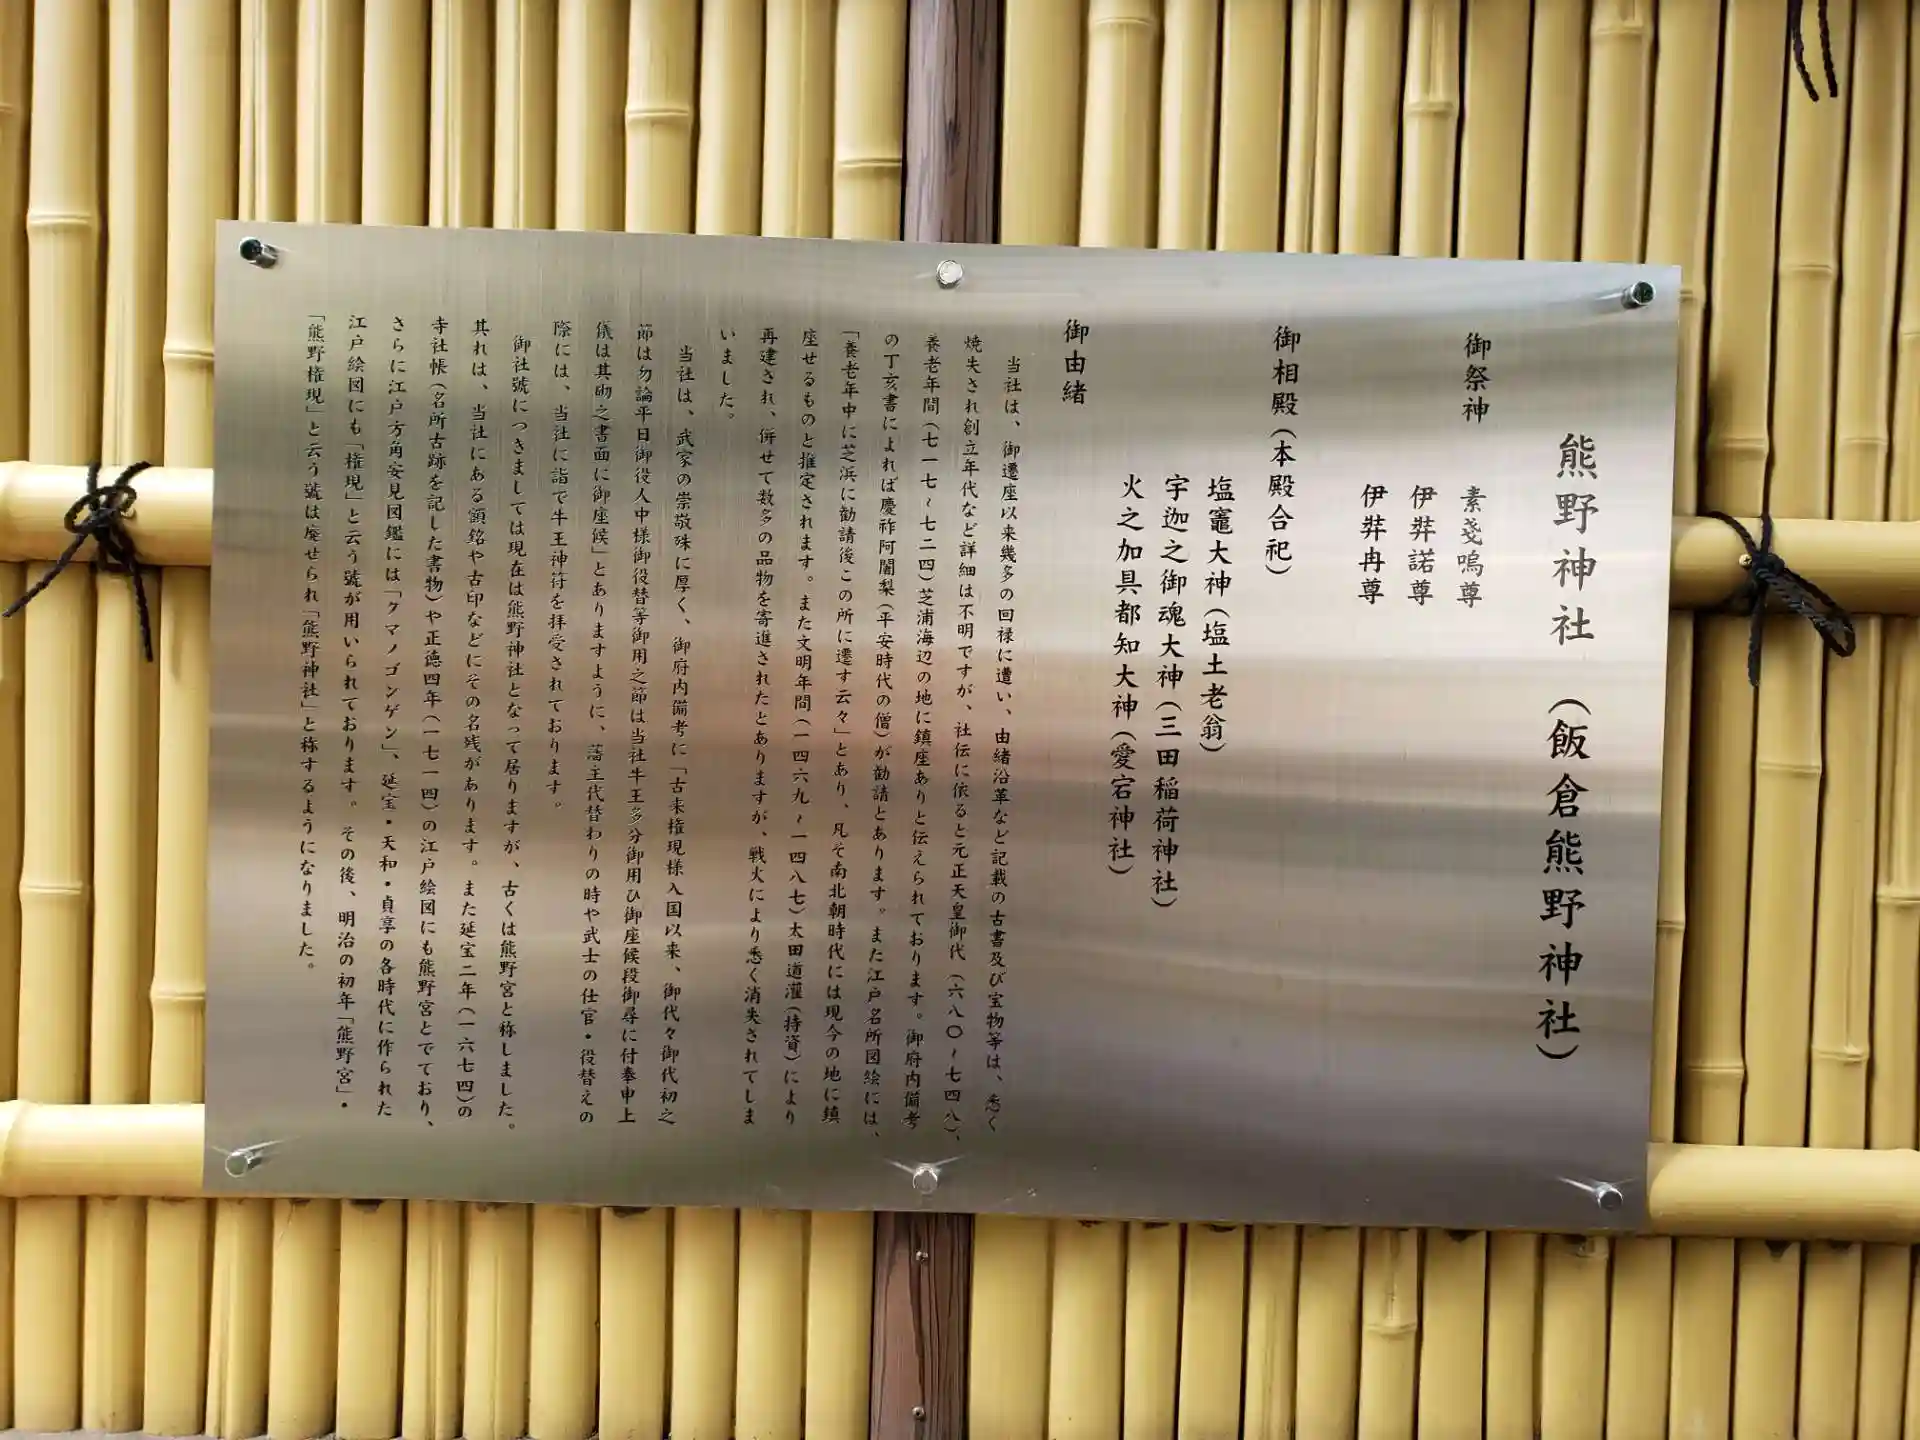 熊野神社 (飯倉熊野神社)
御祭神
素戔嗚尊
伊弉諾尊
伊弉冉尊
御相殿(本殿合祀)
塩竈大神(塩土老翁)
宇迦之御魂大神(三田稲荷神社)
火之加具都知大神(愛宕神社)
御由緒
当社は、御遷座以来幾多の回禄に遭い、由緒沿革など記載の古書及び宝物等は、悉く
焼失され創立年代など詳細は不明ですが、社伝に依ると元正天皇御代(六八〇~七四八)、
養老年間(七一七~七二四)芝浦海辺の地に鎮座ありと伝えられております。御府内備考
の丁亥書によれば慶祚阿闍梨(平安時代の僧)が勧請とあります。また江戸名所図絵には、
「養老年中に芝浜に勧請後この所に遷す云々」とあり、凡そ南北朝時代には現今の地に鎮
座せるものと推定されます。また文明年間(一四六九~一四八七)太田道灌(持資)により
再建され、併せて数多の品物を寄進されたとありますが、戦火により悉く消失されてしま
いました。
当社は、武家の崇敬殊に厚く、御府内備考に「古来権現様入国以来、御代々御代初之
節は勿論平日御役人中様御役替等御用之節は当社牛王多分御用ひ御座候段御尋に付奉申上
儀は其砌之書面に御座候」とありますように、藩主代替わりの時や武士の仕官・役替えの
際には、当社に詣で牛王神符を拝受されております。
御社號につきましては現在は熊野神社となって居りますが、古くは熊野宮と称しました。
其れは、当社にある額銘や古印などにその名残があります。また延宝二年(一六七四)の
寺社帳(名所古跡を記した書物)や正徳四年(一七一四)の江戸絵図にも熊野宮とでており、
さらに江戸方角安見図鑑には「クマノゴンゲン」、延宝・天和・貞享の各時代に作られた
江戸絵図にも「権現」と云う號が用いられております。その後、明治の初年「熊野宮」・
「熊野権現」と云う號は廃せられ「熊野神社」と称するようになりました。